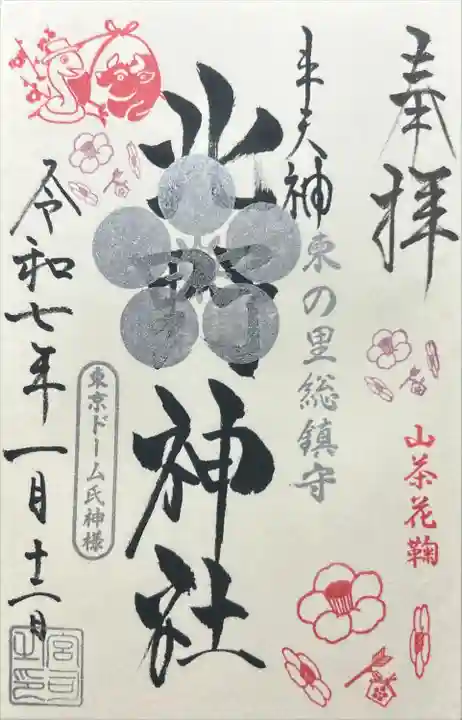 奉拝
山茶花鞠
牛天神
東の里総鎮守
北野神社
東京ドーム氏神様
令和七年一月
宮司之印